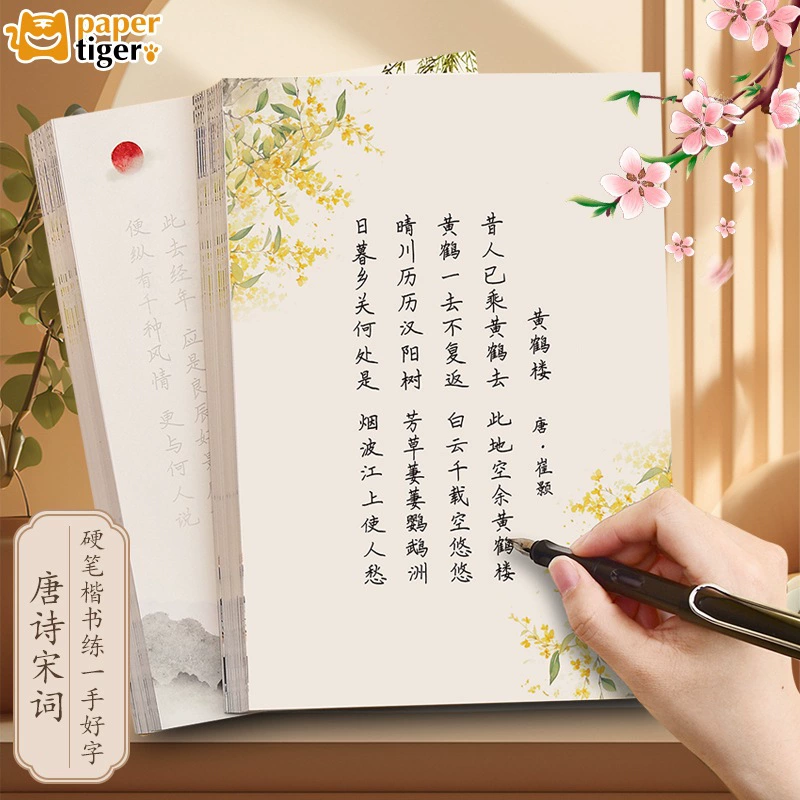 paper
tiger
黄鹤楼 唐·崔颢
昔人已乘黄鹤去 此地空余黄鹤楼
黄鹤一去不复返 白云千载空悠悠
晴川历历汉阳树 芳草萋萋鹦鹉洲
日暮乡关何处是 烟波江上使人愁
此去经年 应是良辰好
便纵有千种风情 更与何人说
硬笔楷书练一手好字
唐诗宋词